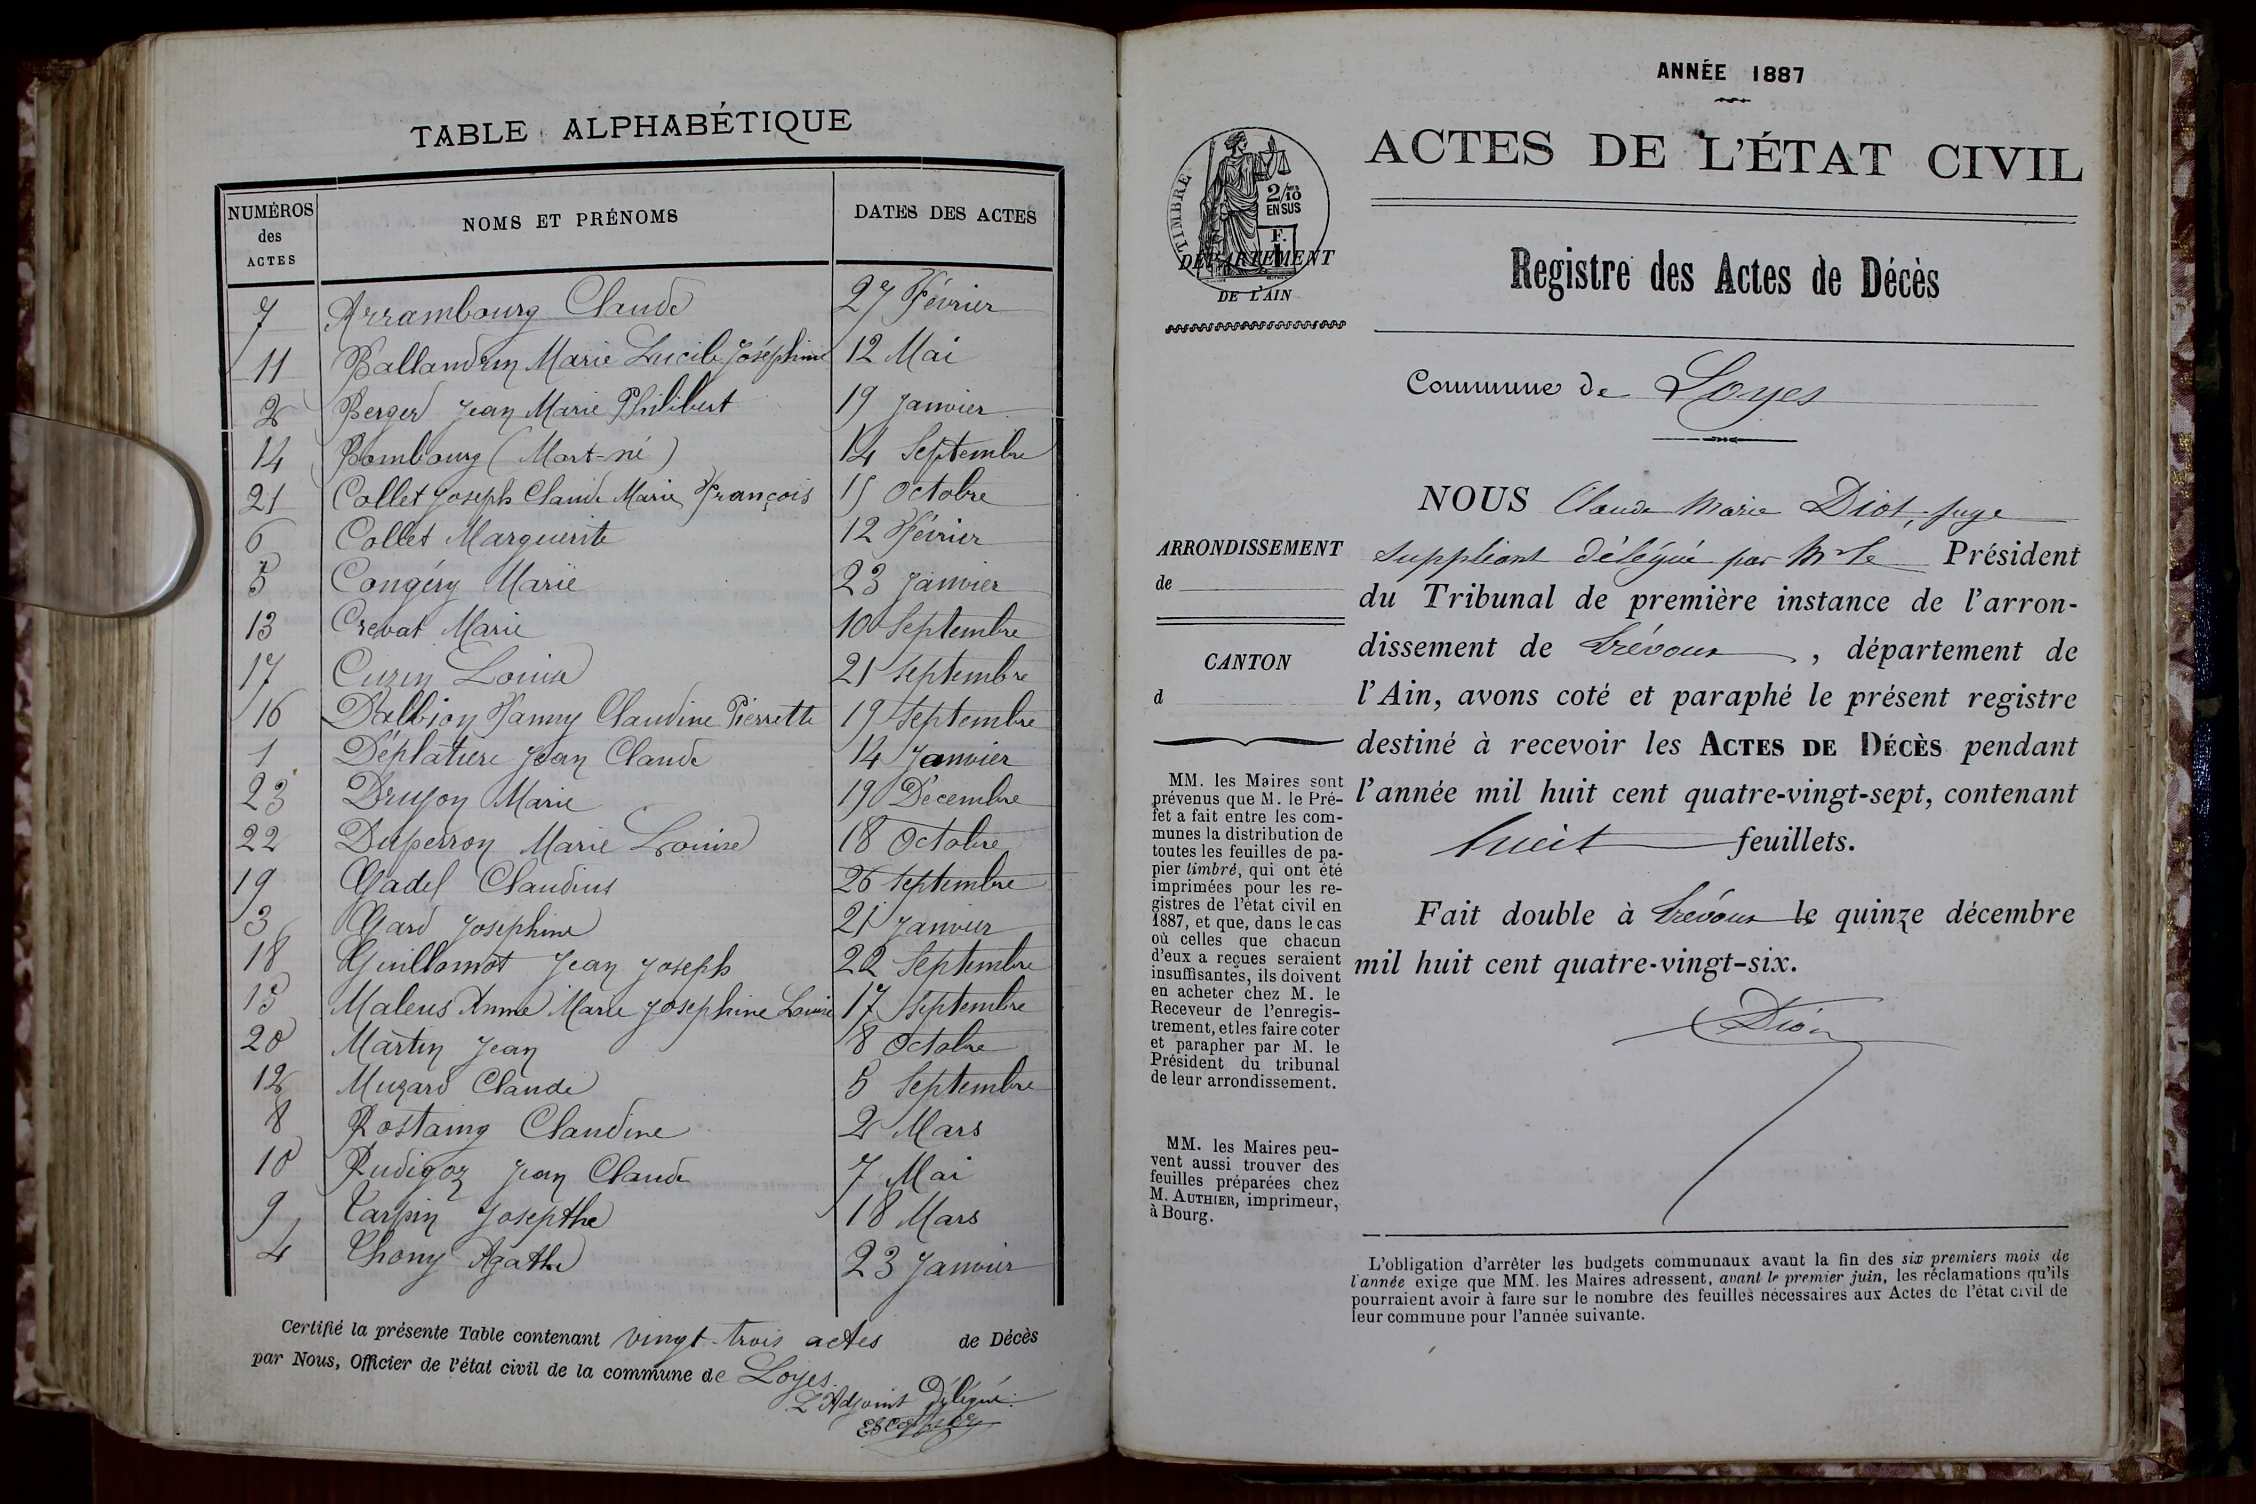 TABLE ALPHABÉTIQUE
NUMÉROS des ACTES NOMS ET PRÉNOMS DATES DES ACTES
7 Arrambourg Claude 27 Février
11 Ballandrin Marie Lucile Joséphine 12 Mai
2 Berger Jean Marie Philibert 19 Janvier
14 Bombourg (Mort-né) 14 Septembre
21 Collet Joseph Claude Marie François 15 Octobre
6 Collet Marguerite 12 Février
5 Congéry Marie 23 Janvier
13 Crevat Marie 10 Septembre
17 Cuzin Louise 21 Septembre
16 Dalbion Fanny Claudine Pierrette 19 Septembre
1 Déplatière Jean Claude 14 Janvier
23 Drujon Marie 19 Décembre
22 Duperron Marie Louise 18 Octobre
19 Gadel Claudius 26 Septembre
3 Gard Joséphine 21 Janvier
18 Guillomot Jean Joseph 22 Septembre
15 Maleus Anne Marie Josephine Louise 17 Septembre
20 Martin Jean 8 Octobre
12 Muzard Claude 5 Septembre
8 Rostaing Claudine 2 Mars
10 Rudigoz Jean Claude 7 Mai
9 Tarpin Josepthe 18 Mars
4 Thony Agathe 23 Janvier
Certifié la présente Table contenant vingt-trois actes de Décès
par Nous, Officier de l'état civil de la commune de Loyes.
L'Adjoint Délégué.
ANNÉE 1887
ACTES DE L'ÉTAT CIVIL
TIMBRE
2/10
EN SUS
F.
1
DÉPARTEMENT
DE L'AIN
Registre des Actes de Décès
Commune de Loyes
ARRONDISSEMENT
de
CANTON
d
MM. les Maires sont
prévenus que M. le Pré-
fet a fait entre les com-
munes la distribution de
toutes les feuilles de pa-
pier timbré, qui ont été
imprimées pour les re-
gistres de l'état civil en
1887, et que, dans le cas
où celles que chacun
d'eux a reçues seraient
insuffisantes, ils doivent
en acheter chez M. le
Receveur de l'enregis-
trement, et les faire coter
et parapher par M. le
Président du tribunal
de leur arrondissement.
MM. les Maires peu-
vent aussi trouver des
feuilles préparées chez
M. AUTHIER, imprimeur,
à Bourg.
NOUS Claude Marie Diot, juge
suppléant délégué par Mr le Président
du Tribunal de première instance de l'arron-
dissement de Trévoux, département de
l'Ain, avons coté et paraphé le présent registre
destiné à recevoir les ACTES DE DÉCÈS pendant
l'année mil huit cent quatre-vingt-sept, contenant
huit feuillets.
Fait double à Trévoux le quinze décembre
mil huit cent quatre-vingt-six.
Diot
L'obligation d'arrêter les budgets communaux avant la fin des six premiers mois de
l'année exige que MM. les Maires adressent, avant le premier juin, les réclamations qu'ils
pourraient avoir à faire sur le nombre des feuilles nécessaires aux Actes de l'état civil de
leur commune pour l'année suivante.